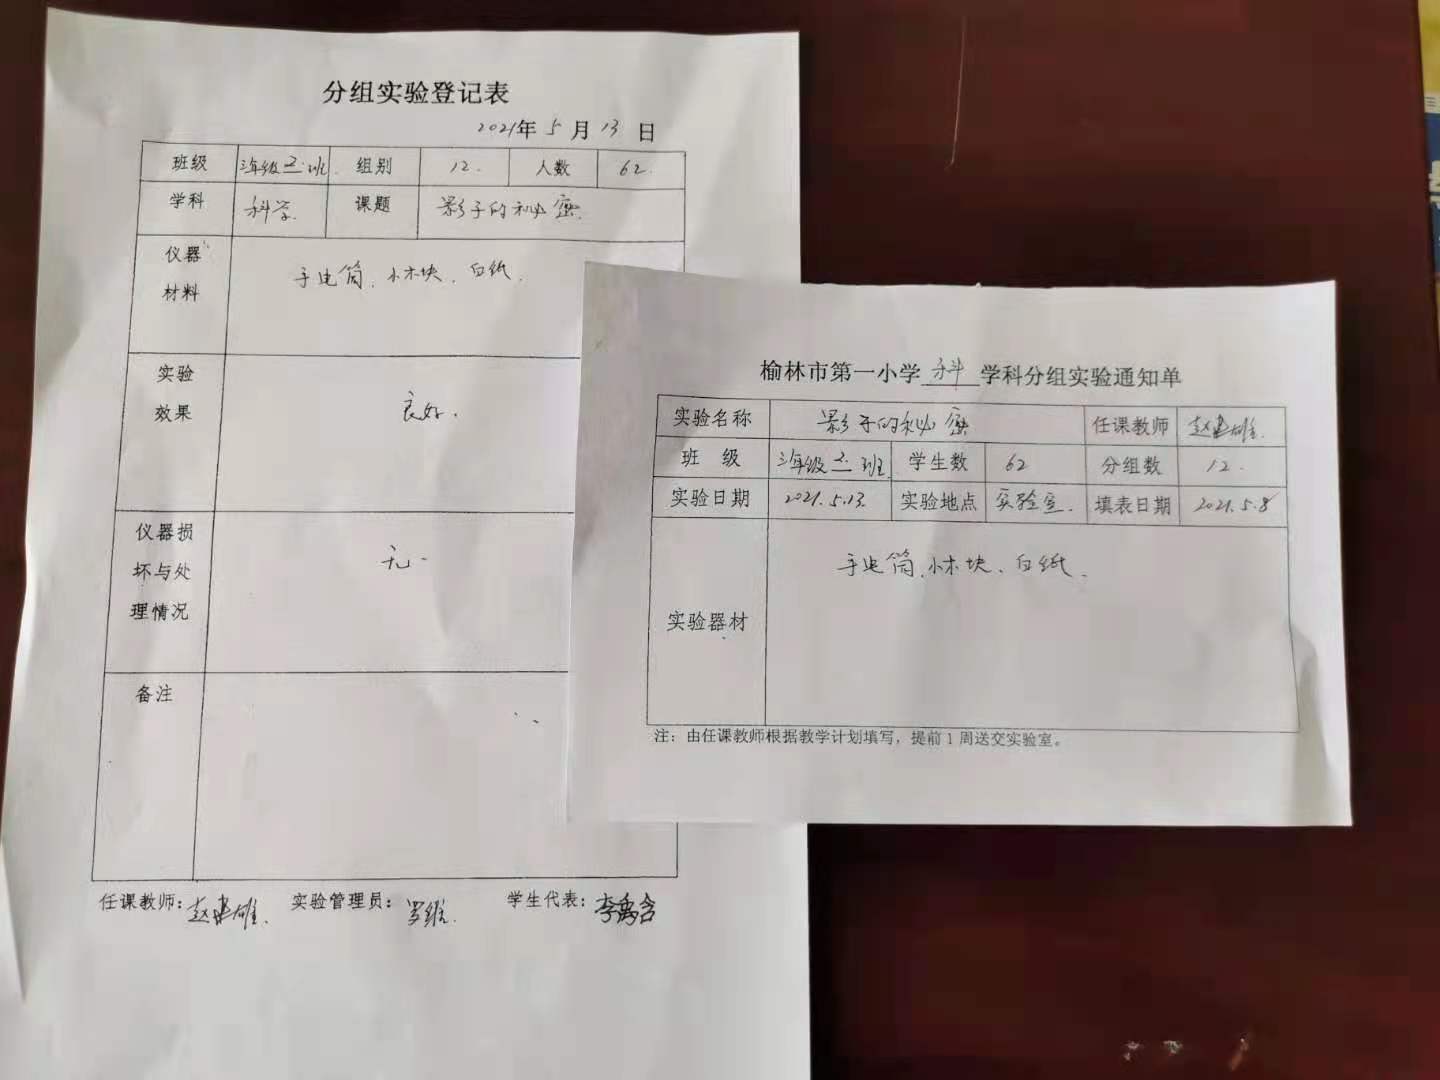 分组实验登记表
2021年 5 月 13 日
班级 三年级 班 组别 12. 人数 62.
学科 科学. 课题 影子的秘密.
仪器 手电筒、小木块、白纸.
材料
实验
效果 良好.
仪器损
坏与处 无.
理情况
备注
任课教师: 赵建雄. 实验管理员: 罗维. 学生代表: 李禹含
榆林市第一小学 科 学科分组实验通知单
实验名称 影子的秘密 任课教师 赵建雄.
班 级 三年级 班 学生数 62 分组数 12.
实验日期 2021.5.13. 实验地点 实验室. 填表日期 2021.5.8
手电筒、小木块、白纸.
实验器材
注：由任课教师根据教学计划填写，提前1周送交实验室。